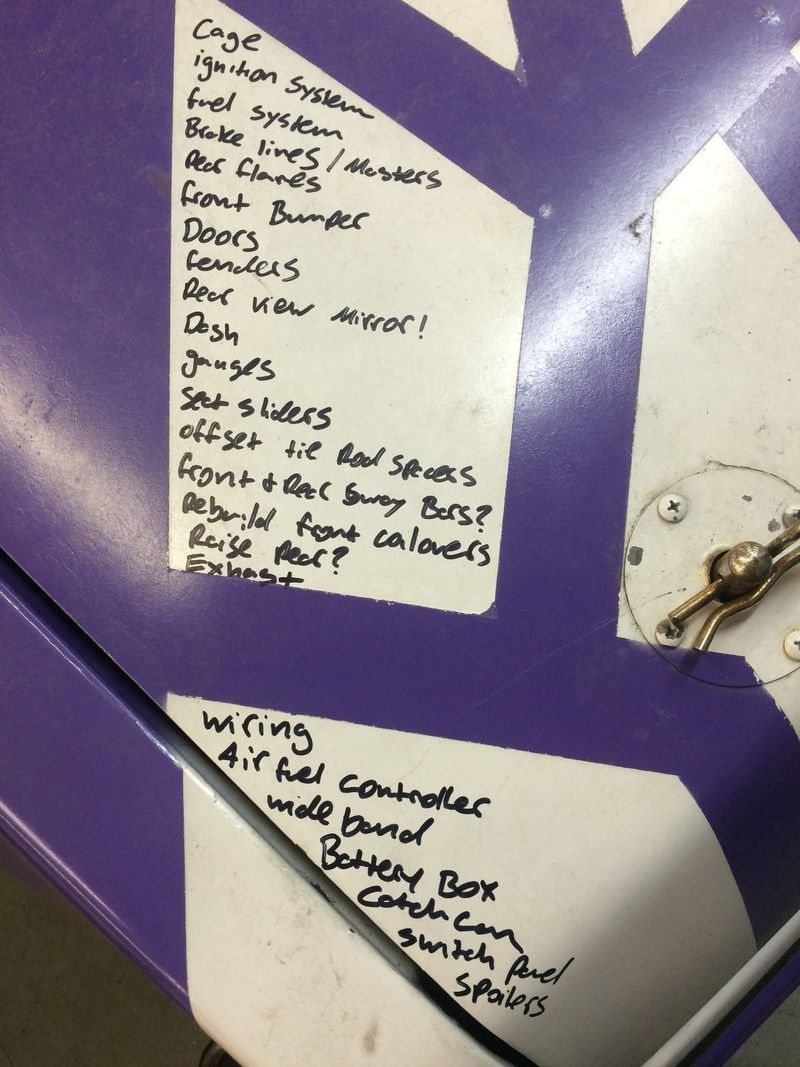 Cage
ignition system
fuel system
Brake lines / Masters
Rear flares
front Bumper
Doors
fenders
Rear view Mirror!
Dash
gauges
Seat sliders
offset tie Rod spacers
front + Rear Sway Bars?
Rebuild front coilovers
Raise Rear?
Exhast
wiring
Air fuel controller
wide band
Battery Box
Catch can
switch panel
spoilers